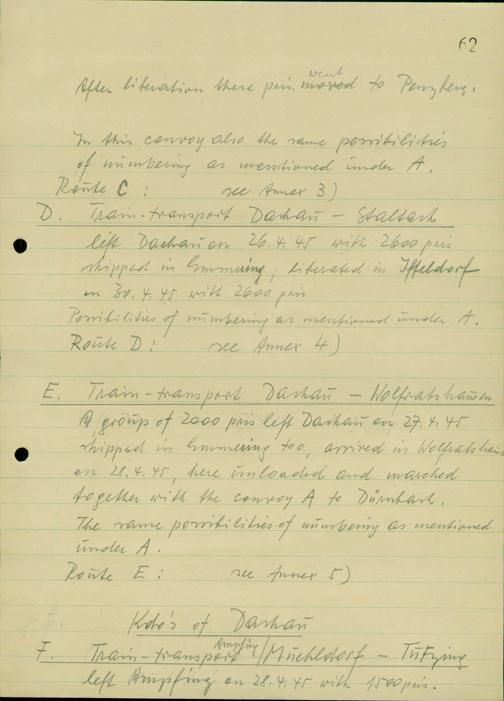 62
After liberation these pris. went to Penzberg.
In this convoy also the same possibilities
of numbering as mentioned under A.
Route C : see Annex 3)
D. Train-transport Dachau - Staltach
left Dachau on 26.4.45 with 2600 pris
shipped in Emmering, liberated in Iffeldorf
on 30.4.45 with 2600 pris
Possibilities of numbering as mentioned under A.
Route D : see Annex 4)
E. Train-transport Dachau - Wolfratshausen
A group of 2000 pris left Dachau on 27.4.45
shipped in Emmering too, arrived in Wolfratshaus
on 28.4.45, here unloaded and marched
together with the convoy A to Dürnbach.
The same possibilities of numbering as mentioned
under A.
Route E : see Annex 5)
Kdo's of Dachau
F. Train-transport Ampfing/Muehldorf - Tutzing
left Ampfing on 28.4.45 with 1500 pris.